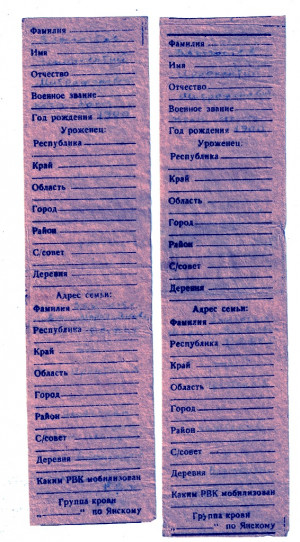 Фамилия
Имя
Отчество
Военное звание
Год рождения
Уроженец:
Республика
Край
Область
Город
Район
С/совет
Деревня
Адрес семьи:
Фамилия
Республика
Край
Область
Город
Район
С/совет
Деревня
Каким РВК мобилизован
Группа крови
„ “ по Янскому
Фамилия
Имя
Отчество
Военное звание
Год рождения
Уроженец:
Республика
Край
Область
Город
Район
С/совет
Деревня
Адрес семьи:
Фамилия
Республика
Край
Область
Город
Район
С/совет
Деревня
Каким РВК мобилизован
Группа крови
„ “ по Янскому